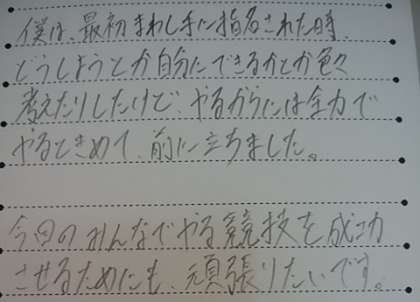 僕は、最初まわし手に指名された時、
どうしようとか自分にできるかとか色々
考えたりしたけど、やるからには全力で
やるときめて、前に立ちました。
今回のみんなでやる競技を成功
させるためにも、頑張りたいです。